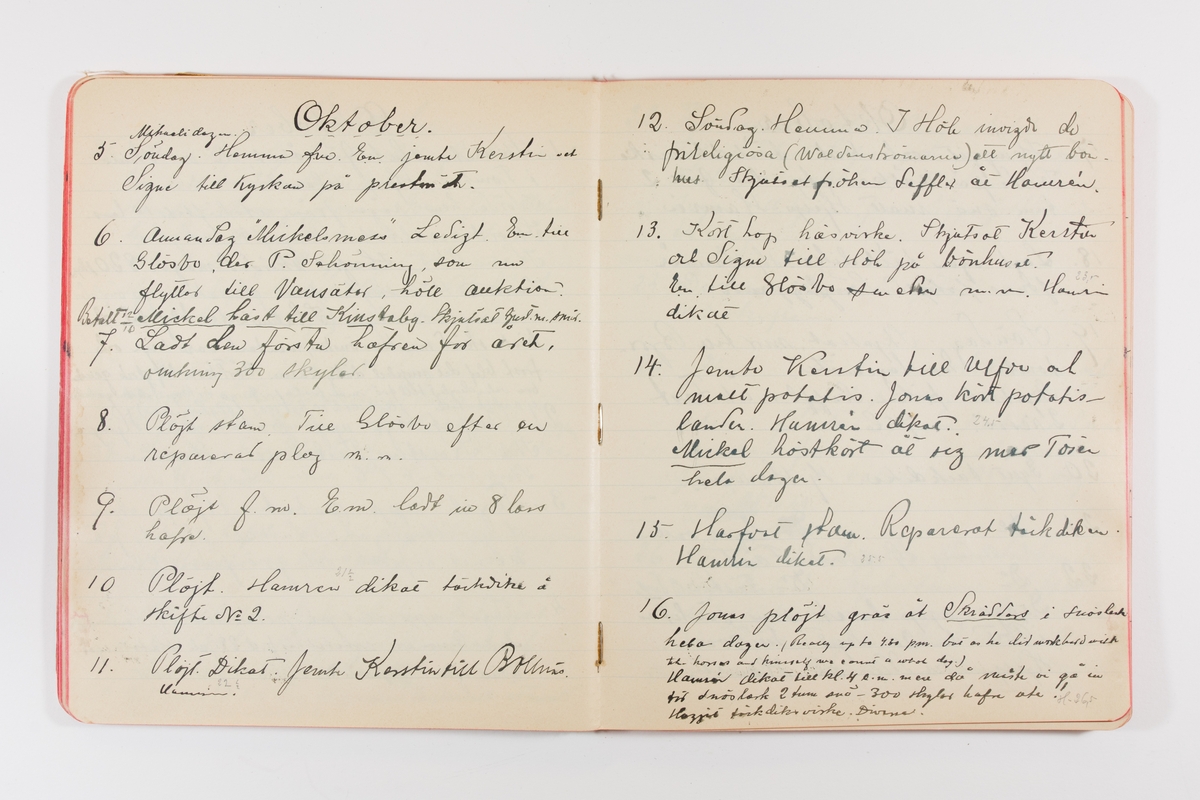 Oktober.
Mikaelidagen.
5. Söndag. Hemma fm. Em. jemte Kerstin och
Signe till kyrkan på
6. Annandag "Mickelsmess" Ledigt. Em. till
Glösbo, der P. Schönning, som nu
flyttar till Vansäter, höll auktion.
Betalt Mickel häst till Kinstaby. Skjutsat
7. Ladt den första hafren för året,
omkring 300 skylar.
8. Plöjt stam. Till Glösbo efter en
reparerad plog m. m.
9. Plöjt f. m. Em. ladt in 8 lass
hafre.
10 Plöjt. Hamrén dikat täckdike å
skifte No 2.
11. Plöjt. Dikat. Jemte Kerstin till Bollnäs.
Hamrén.
12. Söndag. Hemma. I Höle invigde de
frireligiösa (Waldenströmarne) ett nytt bön-
hus. Skjutsat fröken Leffler åt Hamrén.
13. Kört hop häsvirke. Skjutsat Kerstin
och Signe till Höle på bönhuset.
Em. till Glösbo smeden m. m. Hamrén
dikat
14. Jemte Kerstin till och
mält potatis. Jonas kört potatis-
landen. Hamrén dikat.
Mickel höstkört åt sig med Tösen
hela dagen.
15. Harfvat stam. Reparerat täckdiken.
Hamrén dikat.
16. Jonas plöjt gräs åt Skräddars i Snöslask
hela dagen. (Really up to 4:30 p.m. but as he did work hard with
the horses and himself we count a whole day.)
Hamrén dikat till kl. 4 e. m. men då måste vi gå in
för snöslask 2 tum snö – 300 skylar hafre ute!
täckdikesvirke. Diverse.